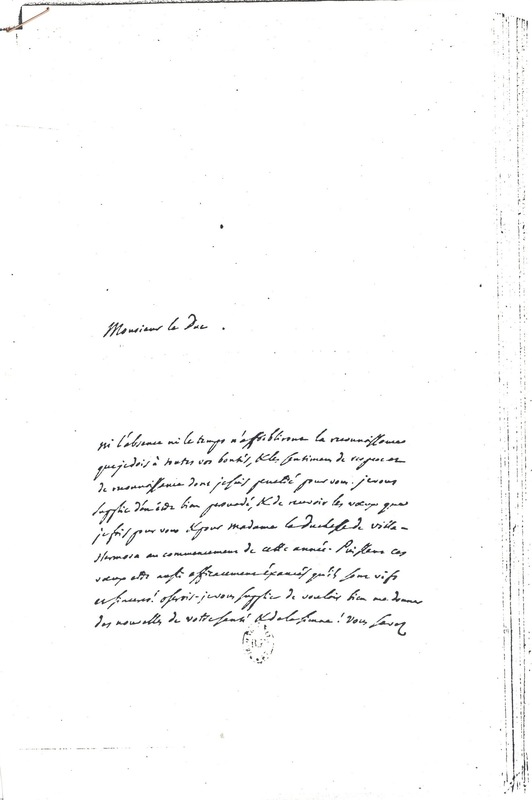 Monsieur le Duc.
ni l'absence ni le temps n'affoibliront la reconnoissance
que je dois à toutes vos bontés, & les sentimens de respect et
de reconnoissance dont je suis penetré pour vous. je vous
supplie d'en être bien persuadé, & de recevoir les vœux que
je fais pour vous & pour madame la duchesse de villa-
Hermosa au commencement de cette année. Puissent ces
vœux etre aussi efficacement exaucés qu'ils sont vifs
et sinceres! oserois-je vous supplier de vouloir bien me donner
des nouvelles de votre santé & de la sienne! Vous savez